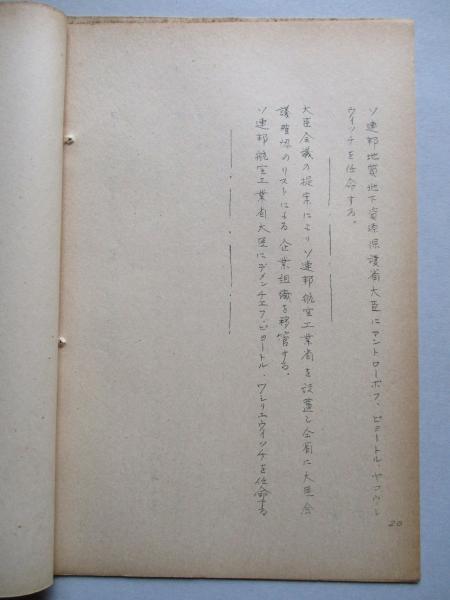 ソ連邦地質地下資源保護省大臣にアントローポフ、ピョートル・ヤコヴレ
ウイッチを任命する。
大臣会議の提案によりソ連邦航空工業省を設置し全省に大臣会
議確認のリストによる企業組織を移管する。
ソ連邦航空工業省大臣にデメンチエフ・ピョートル・ワシリエウイッチを任命する
20